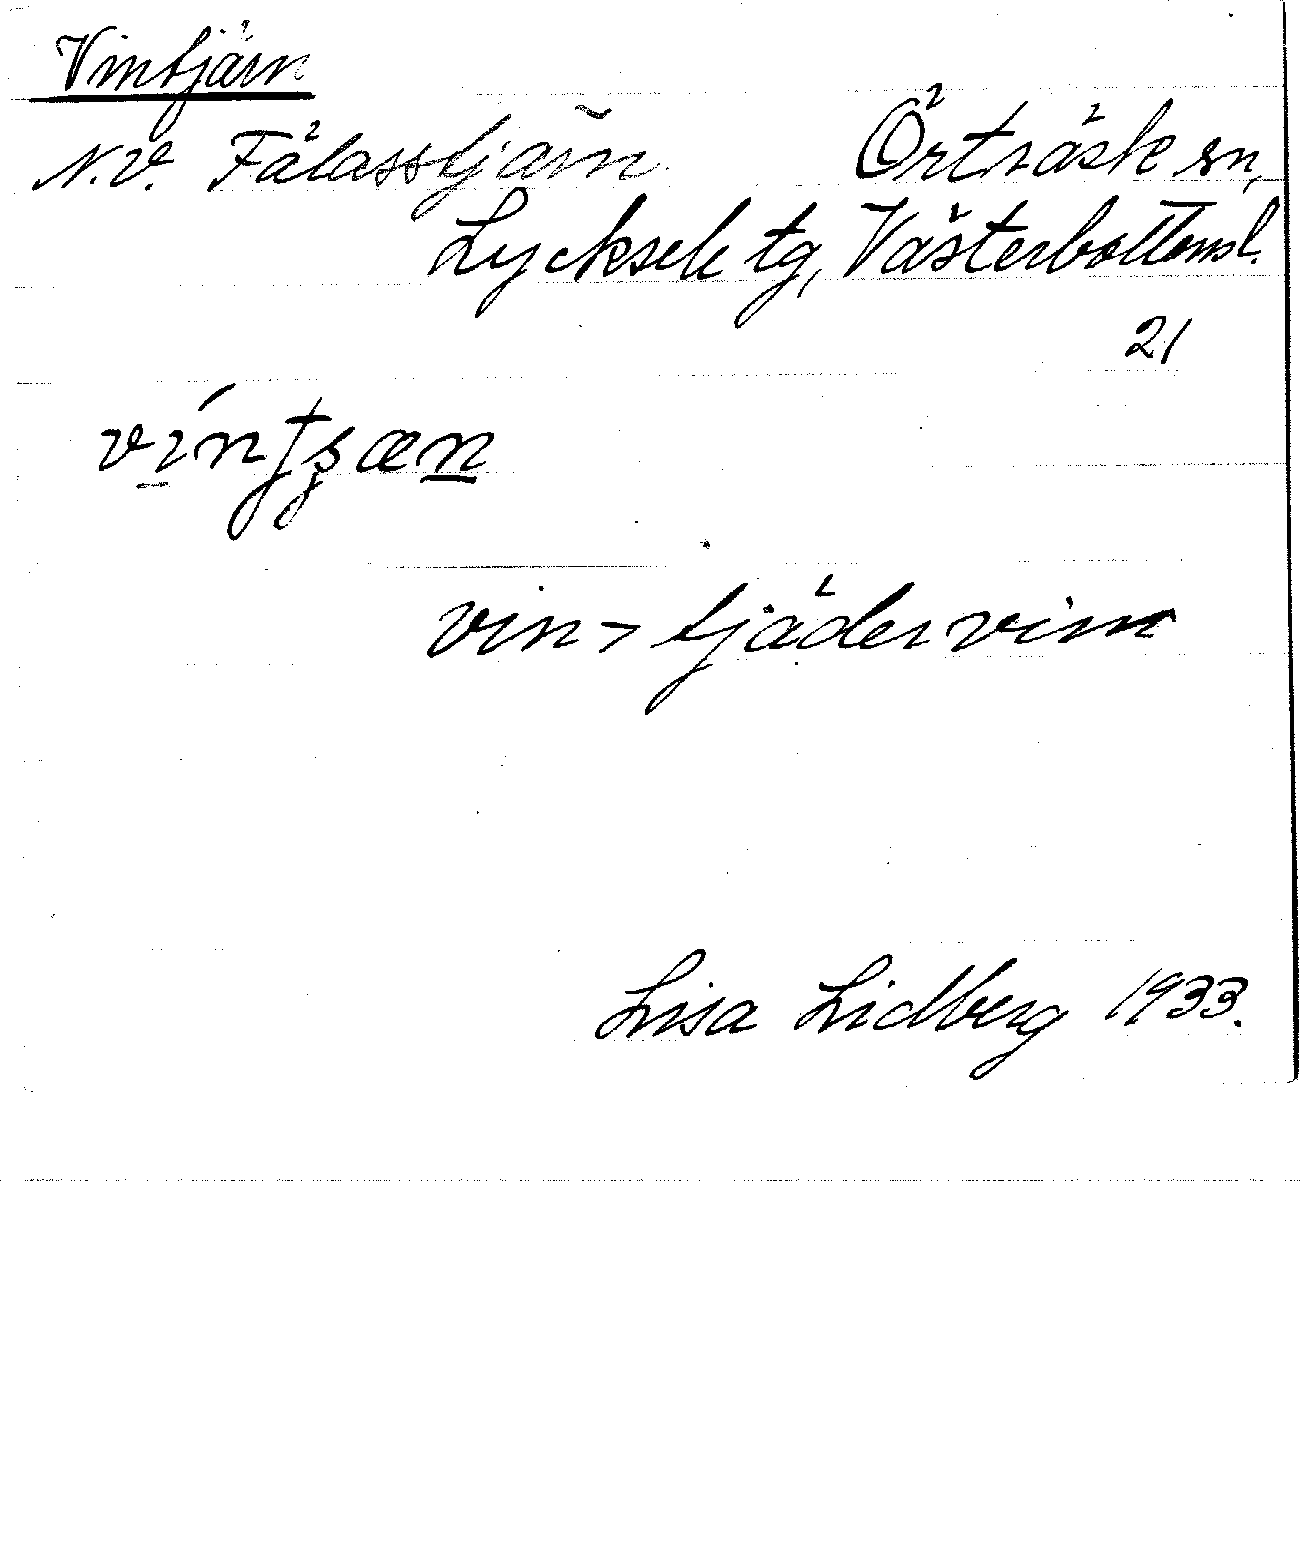 Vintjärn
N.V. Fälasstjärn Örträsk sn,
Lycksele tg, Västerbottensl.
21
vin- tjädervin
Lisa Lidberg 1933.